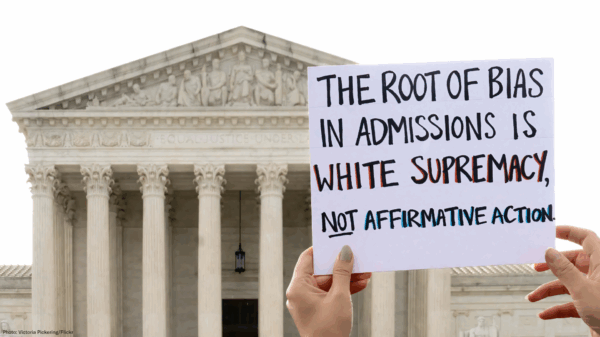 EQUAL JUSTICE UNDER
THE ROOT OF BIAS
IN ADMISSIONS IS
WHITE SUPREMACY,
NOT AFFIRMATIVE ACTION.
Photo: Victoria Pickering/Flickr